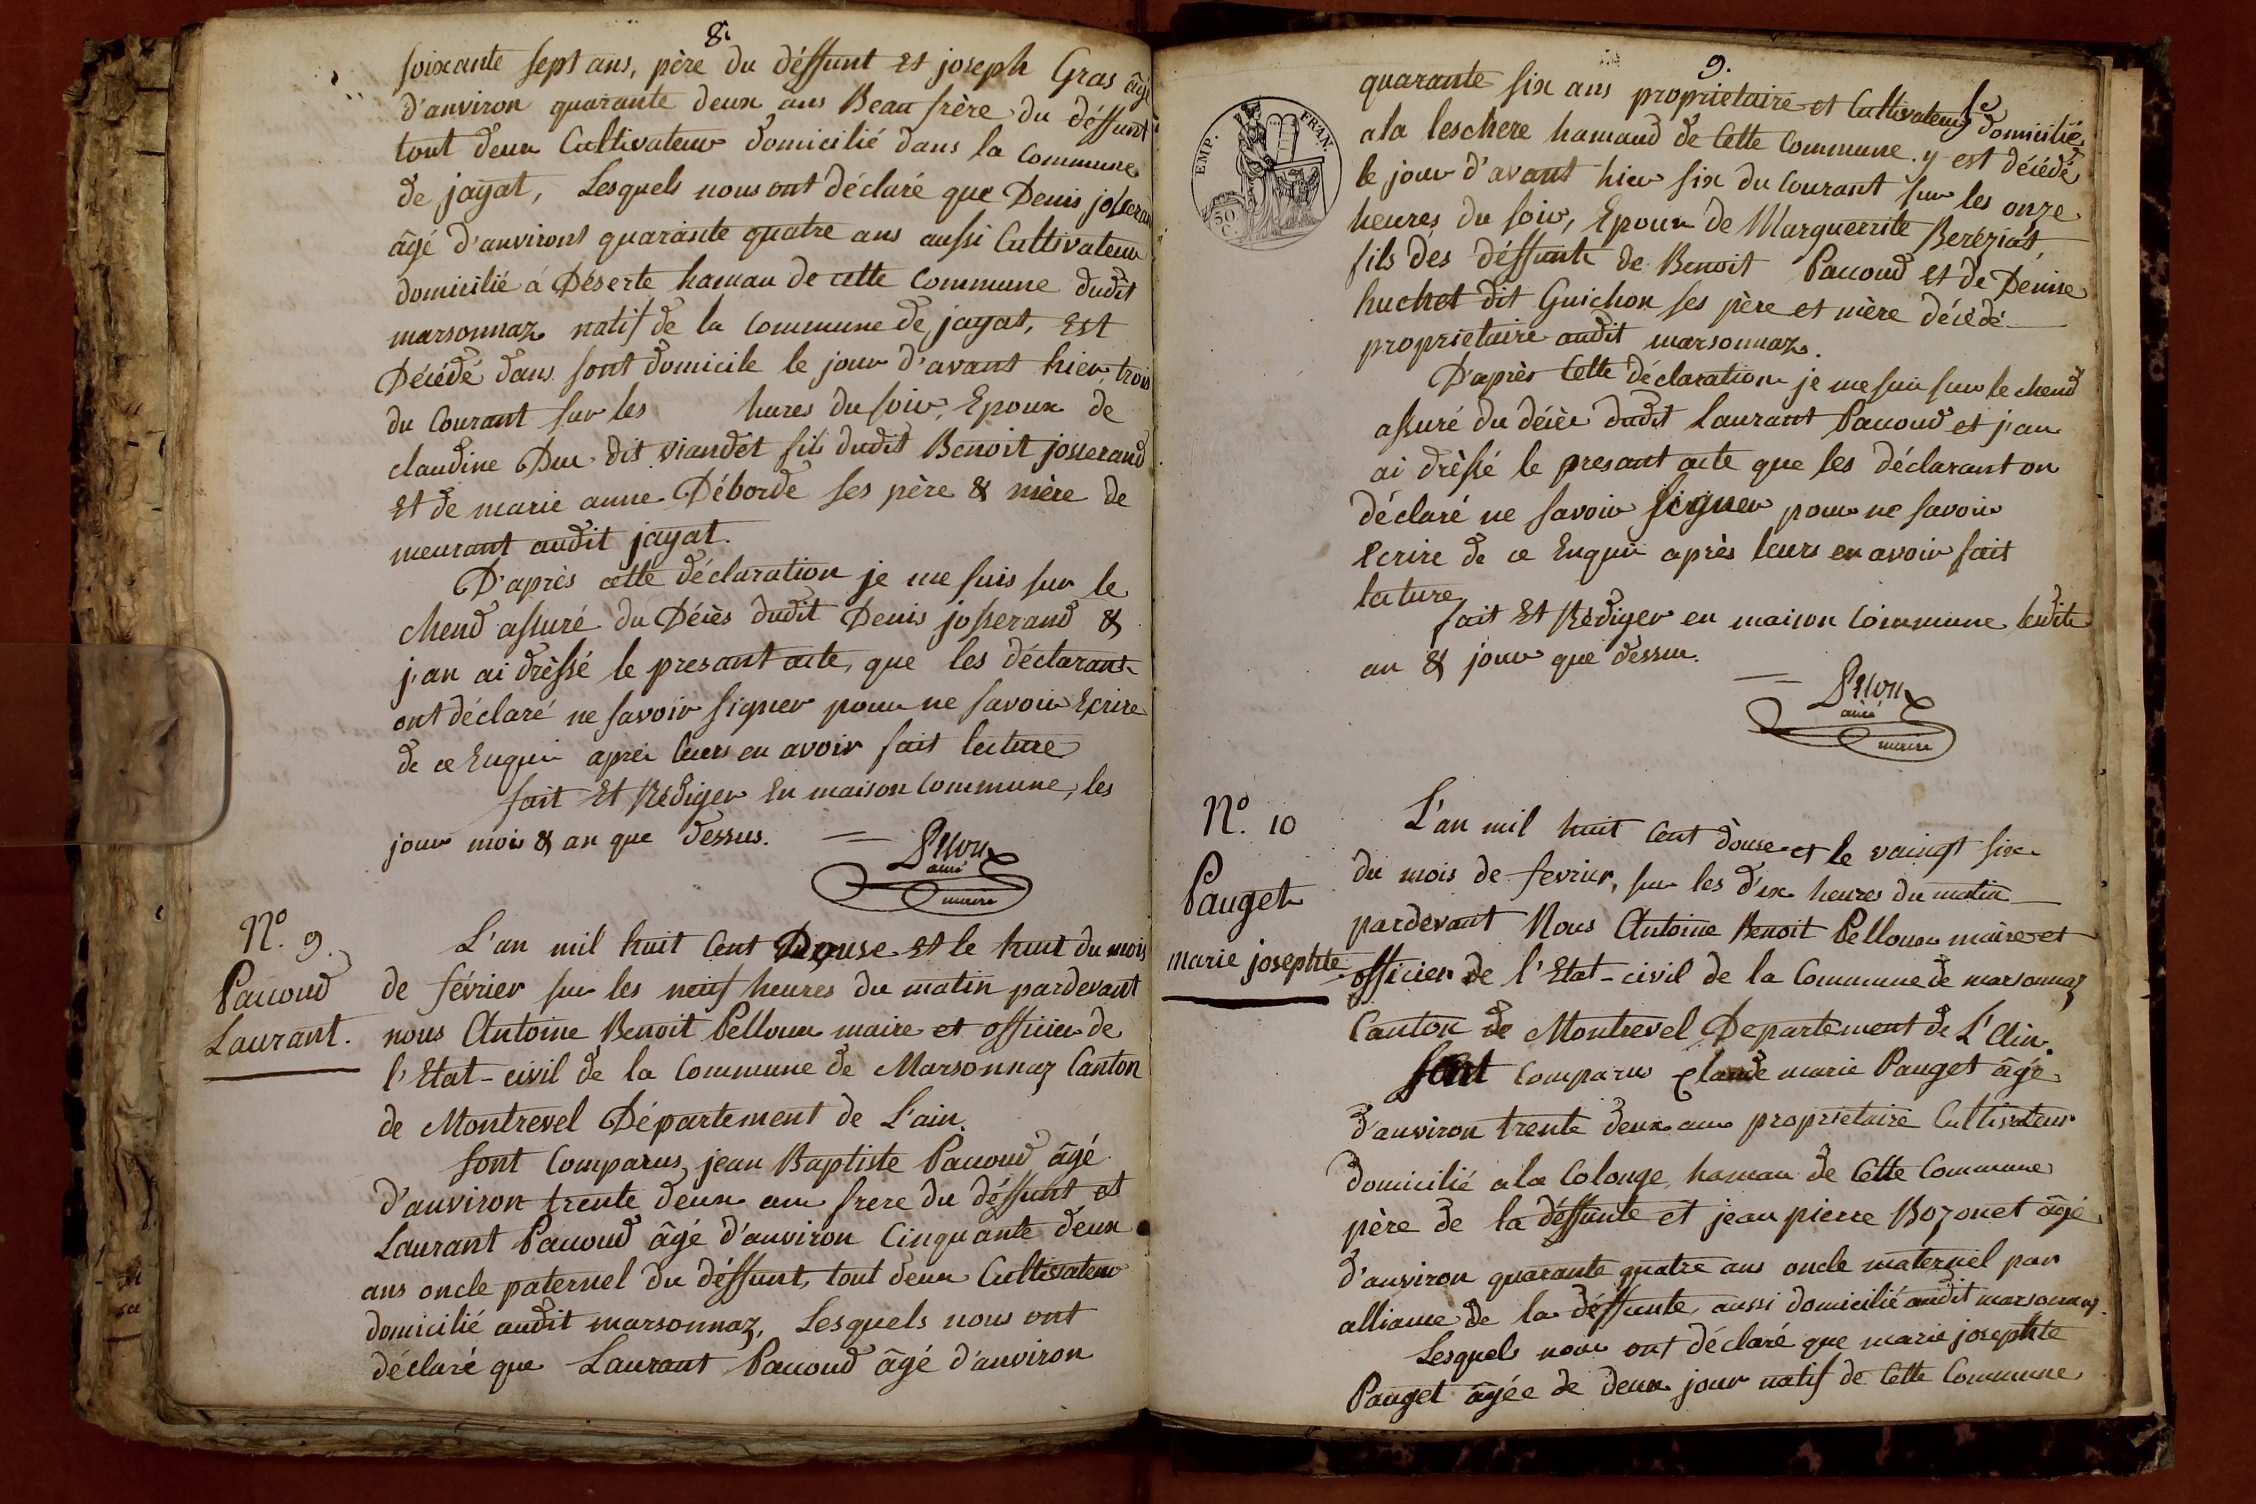 8.
soixante sept ans, père du déffunt et joseph Gras âgé
d'anviron quarante deux ans Beau frère du déffunt
tout deux Cultivateur domicilié dans la Commune
de jayat, Lesquels nous ont déclaré que Denis josserand
âgé d'anviront quarante quatre ans aussi Cultivateur
domicilié á Déserte hamau de cette Commune dudit
marsonnaz natif de la Commune de jayat, Est
Décédé dans sont domicile le jour d'avant hier trois
du Courant sur les hures du soir, Epoux de
claudine Duc dit viandet fils dudit Benoit josserand
Et de marie anne Déborde ses père & mère de
meurant audit jayat.
D'après cette déclaration je me suis sur le
chend assuré du Décès dudit Denis josserand &
j'an ai drèssé le presant acte, que les déclarant
ont déclaré ne savoir signer pour ne savoir Ecrire
de ce Enquis après leurs en avoir fait lecture
fait Et Rédiger En maison Commune, les
jour mois & an que dessus.
ainé
maire
N.º 9.
Pauoud
Laurant.
L'an mil huit Cent Douse Et le huit du mois
de février sur les neuf heures du matin pardevant
nous Antoine Benoit Pelloux maire et officier de
l'Etat-civil de la Commune de Marsonnaz Canton
de Montrevel Département de L'ain.
Sont Comparus, jean Baptiste Pauoud âgé
d'anviron trente deux ans frere du déffunt et
Laurant Pauoud âgé d'anviron Cinquante deux
ans oncle paternel du déffunt, tout deux Cultivateur
domicilié audit marsonnaz, Lesquels nous ont
déclaré que Laurant Pauoud âgé d'anviron
9.
EMP. FRAN.
50 C.
quarante six ans proprietaire et Cultivateur domicilié
a la leschere hamaud de Cette Commune. y est décédé
le jour d'avant hier six du Courant sur les onze
heures du soir, Epoux de Marguerrite Bereziat,
fils des déffunts de Benoit Pauoud et de Denise
huchet dit Guichon ses père et mère décédé
proprietaire audit marsonnaz.
D'après Cette déclaration je me suis sur le chend
assuré du décès dudit Laurant Pauoud et j'an
ai drèssé le presant acte que les déclarant on
déclaré ne savoir signer pour ne savoir
Ecrire de ce Enquis après leurs en avoir fait
lecture
fait Et Rédiger en maison Commune lesdits
an & jour que dessus.
ainé
maire
N.º 10
Pauget
marie josephte
L'an mil huit Cent douse et le vaingt six
du mois de fevrier, sur les dix heures du matin
pardevant Nous Antoine Benoit Pelloux maire et
officier de l'Etat-civil de la Commune de marsonnaz
Canton de Montrevel Departement de L'Ain.
Sont Comparu Claude marie Pauget âgé
d'anviron trente deux ans proprietaire Cultivateur
domicilié a la Colonge, hamau de Cette Commune
père de la déffunte et jean pierre Bozonet âgé
d'anviron quarante quatre ans oncle maternel par
alliance de la déffunte, aussi domicilié audit marsonnaz.
Lesquels nous ont déclaré que marie josephte
Pauget âgée de deux jour natif de Cette Commune